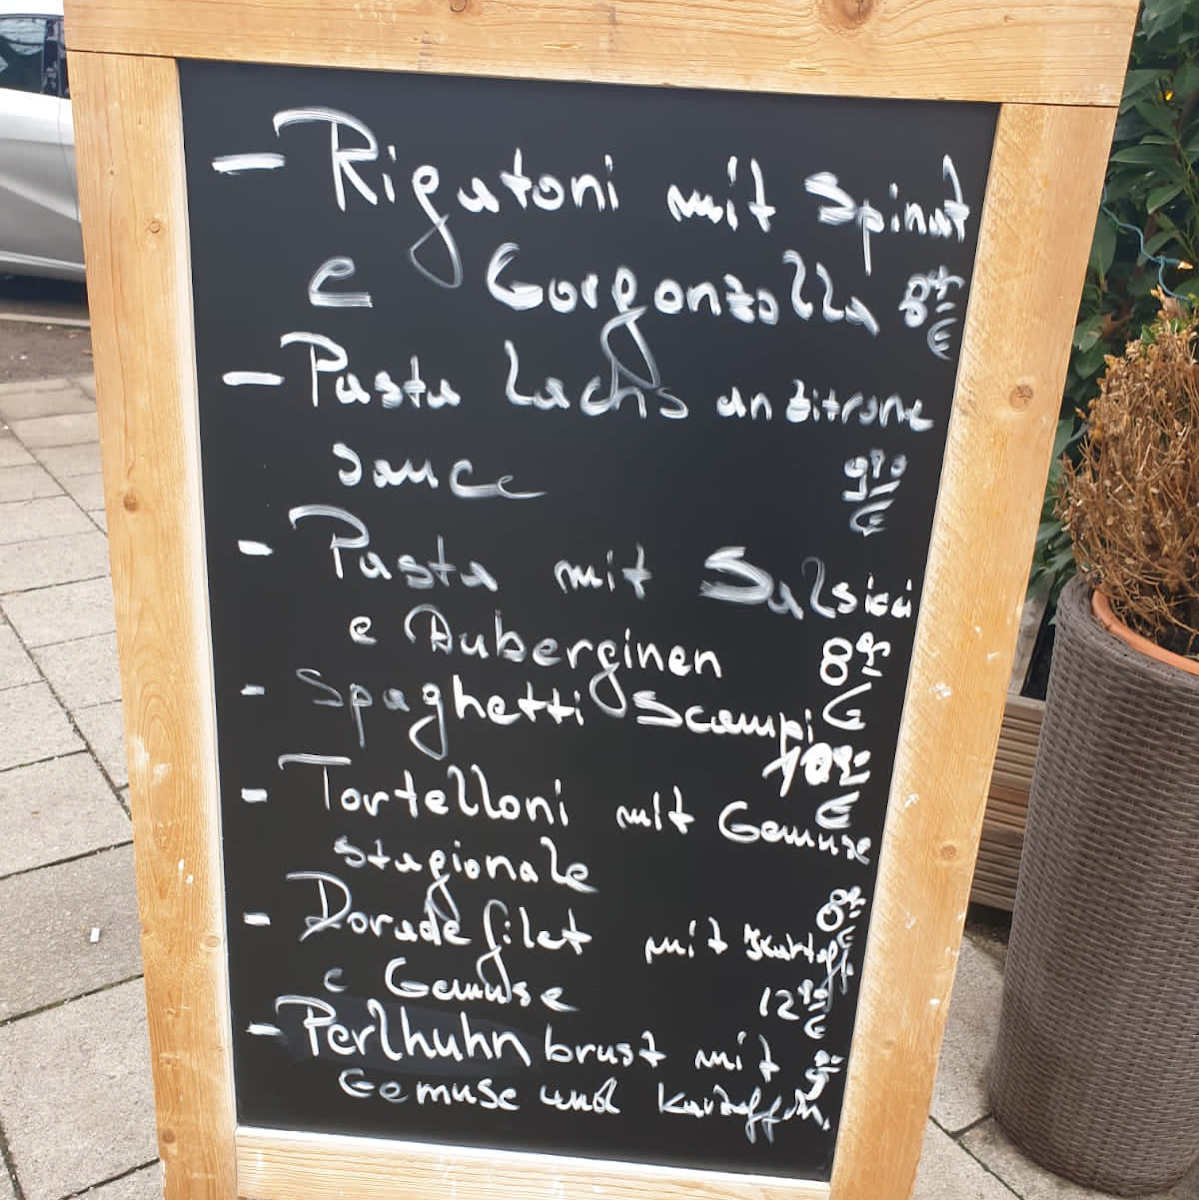 - Rigatoni mit Spinat
e Gorgonzolla 8
€
- Pasta Lachs an Zitrone
sauce 9,90
€
- Pasta mit Salsicci
e Auberginen 8
€
- Spaghetti Scampi
10
€
- Tortelloni mit Gemuse
stagionale
8
€
- Doradefilet mit Kartoff
e Gemuse 12
€
- Perlhuhnbrust mit 9
Gemuse und Kartoffeln